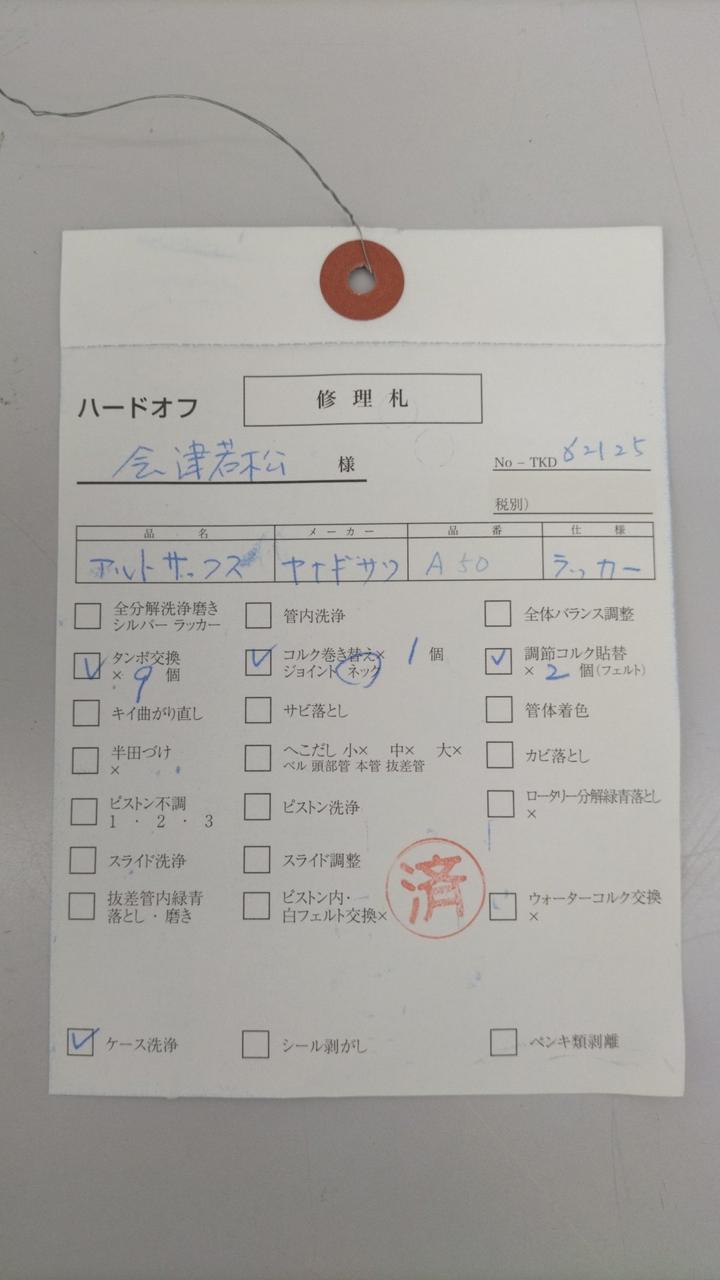 ハードオフ
修理札
会津若松 様
No－TKD 62125
税別）
品名 メーカー 品番 仕様
アルトサックス ヤナギサワ A50 ラッカー
全分解洗浄磨き
シルバー ラッカー
管内洗浄
全体バランス調整
タンポ交換
× 9 個
コルク巻き替え× 1 個
ジョイント ネック
調節コルク貼替
× 2 個(フェルト)
キイ曲がり直し
サビ落とし
管体着色
半田づけ
×
へこだし 小× 中× 大×
ベル 頭部管 本管 抜差管
カビ落とし
ピストン不調
1 ・ 2 ・ 3
ピストン洗浄
ロータリー分解緑青落とし
×
スライド洗浄
スライド調整
済
抜差管内緑青
落とし・磨き
ピストン内・
白フェルト交換×
ウォーターコルク交換
×
ケース洗浄
シール剥がし
ペンキ類剥離